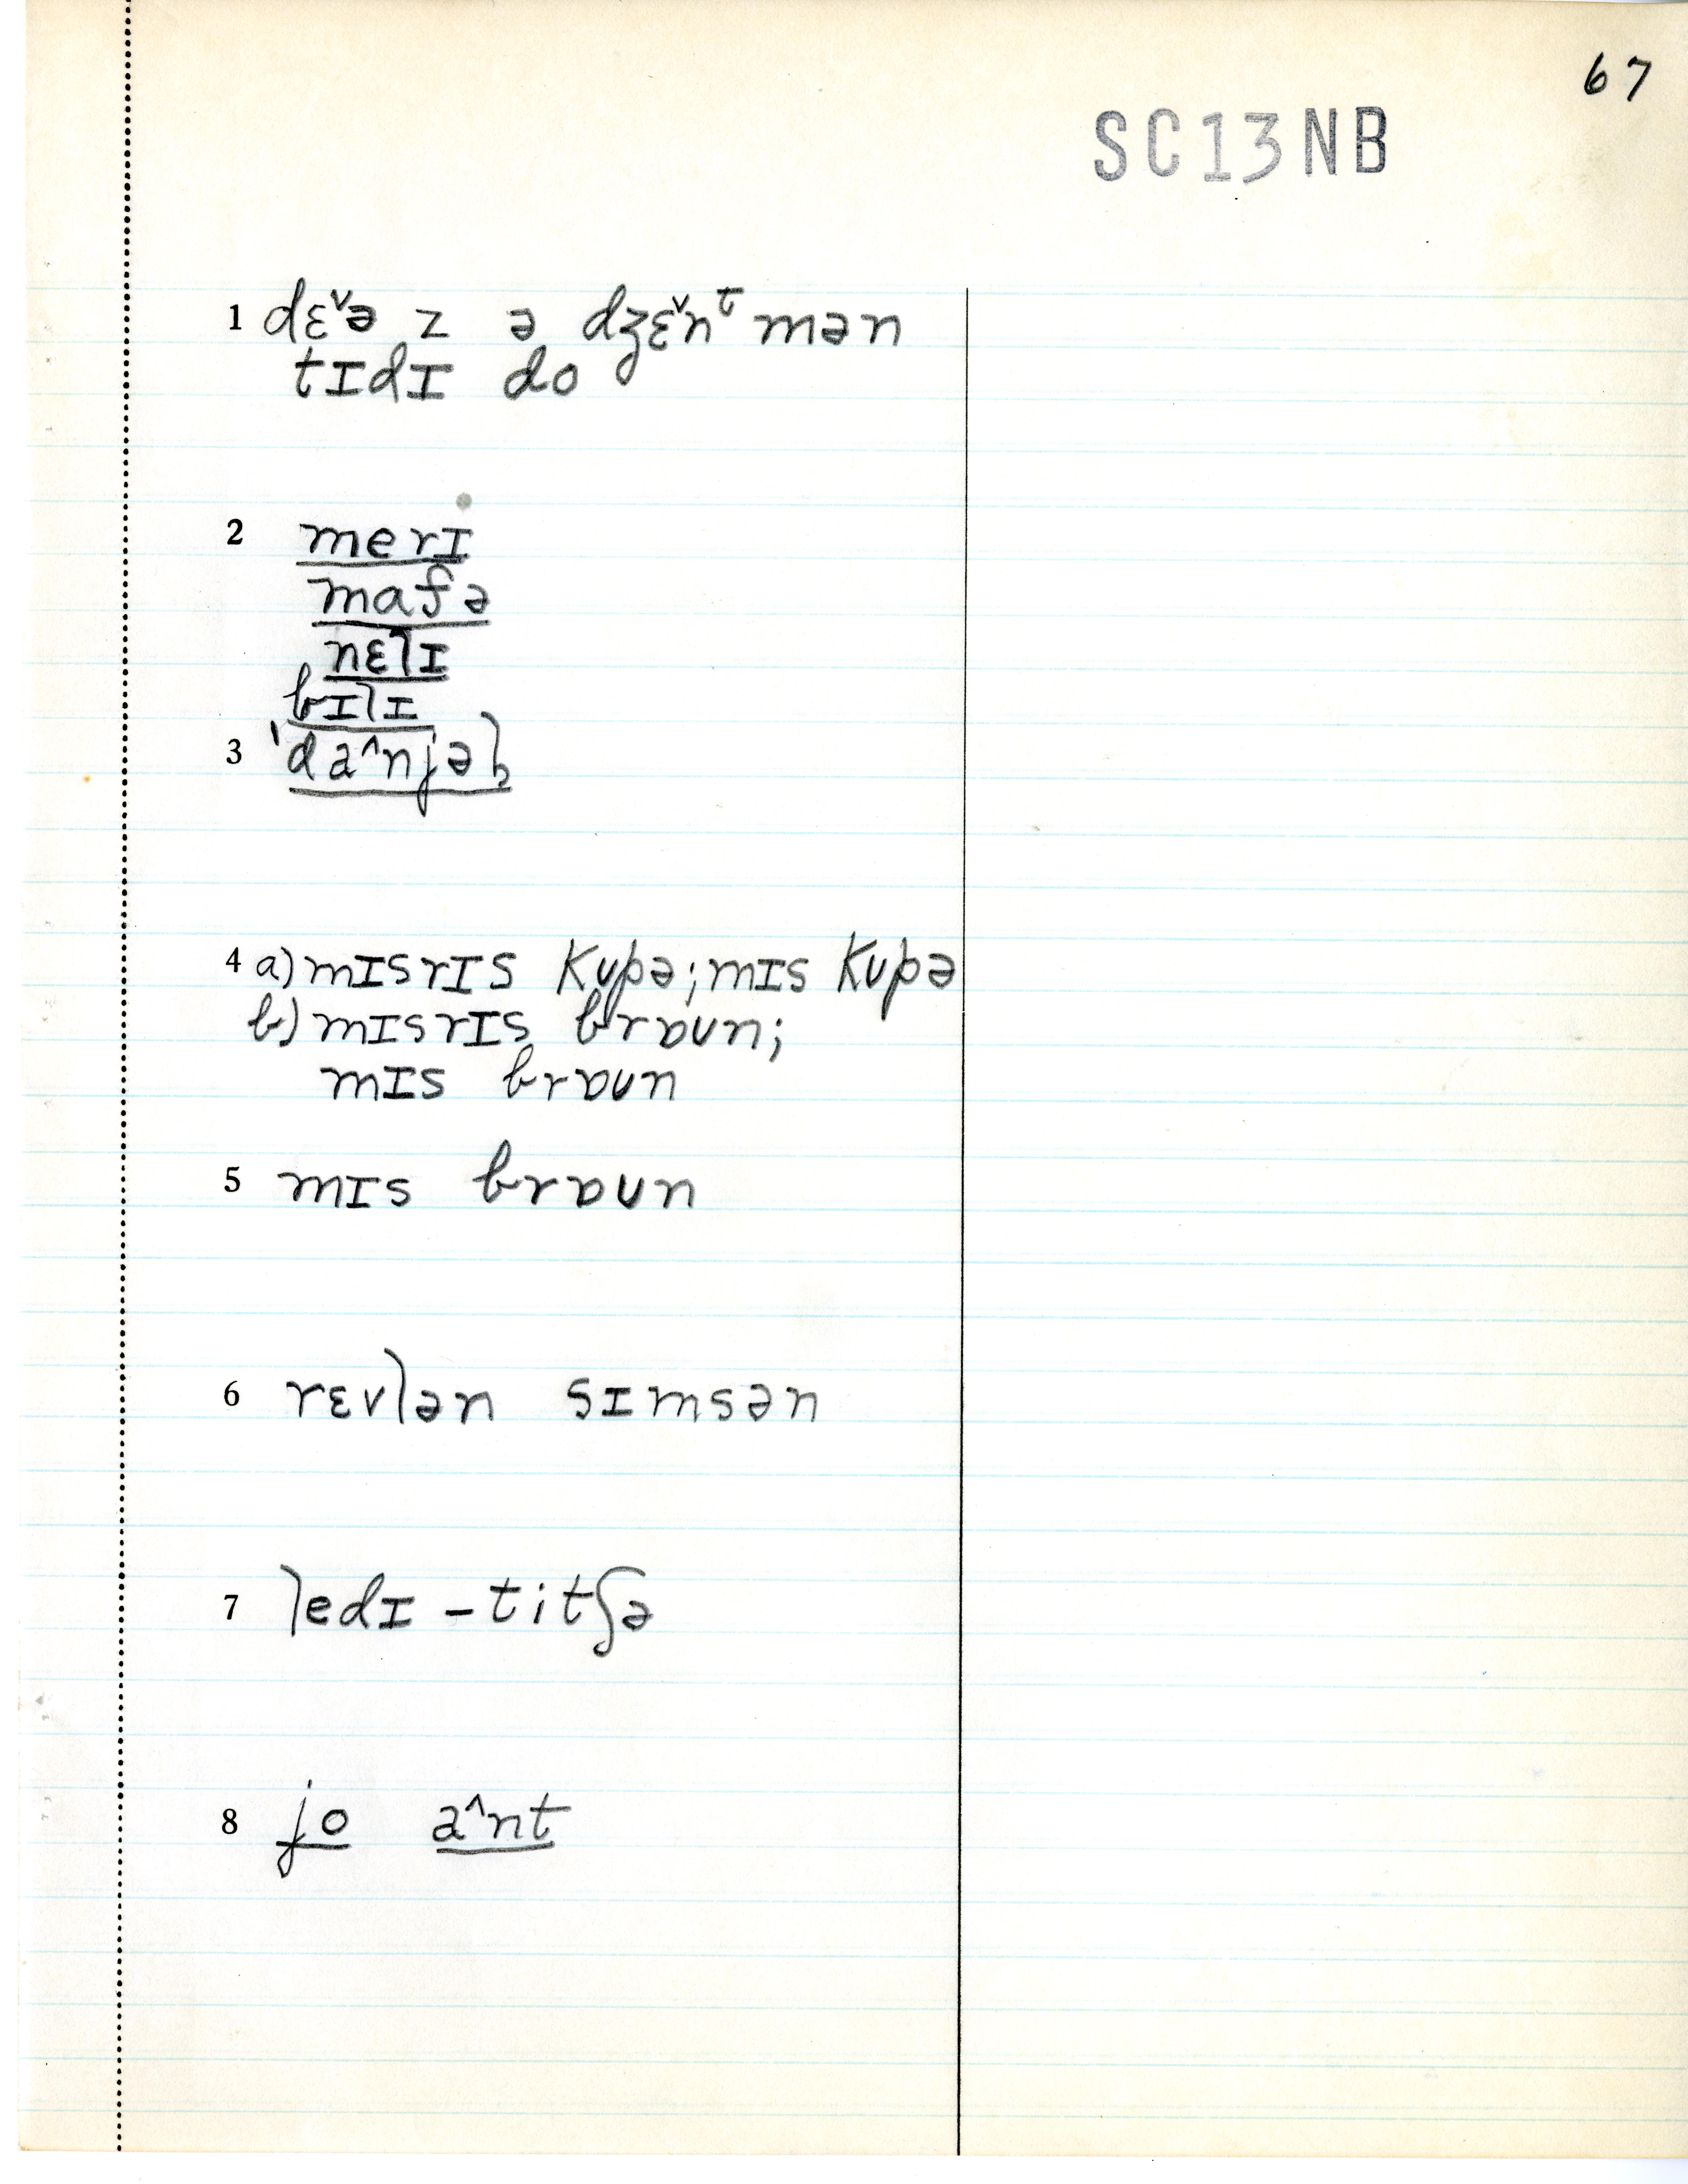 67
SC13NB
1 dɛ˅ə z ə dʒɛ˅nᵗ mən
tɪdɪ do
2 merɪ
mafə
nɛlɪ
bɪlɪ
3 ˈda^njəl̩
4 a) mɪsrɪs kʊpə; mɪs kʊpə
b) mɪsrɪs brɒʊn;
mɪs brɒʊn
5 mɪs brɒʊn
6 rɛvlən sɪmsən
7 ledɪ - titʃə
8 jo a^nt